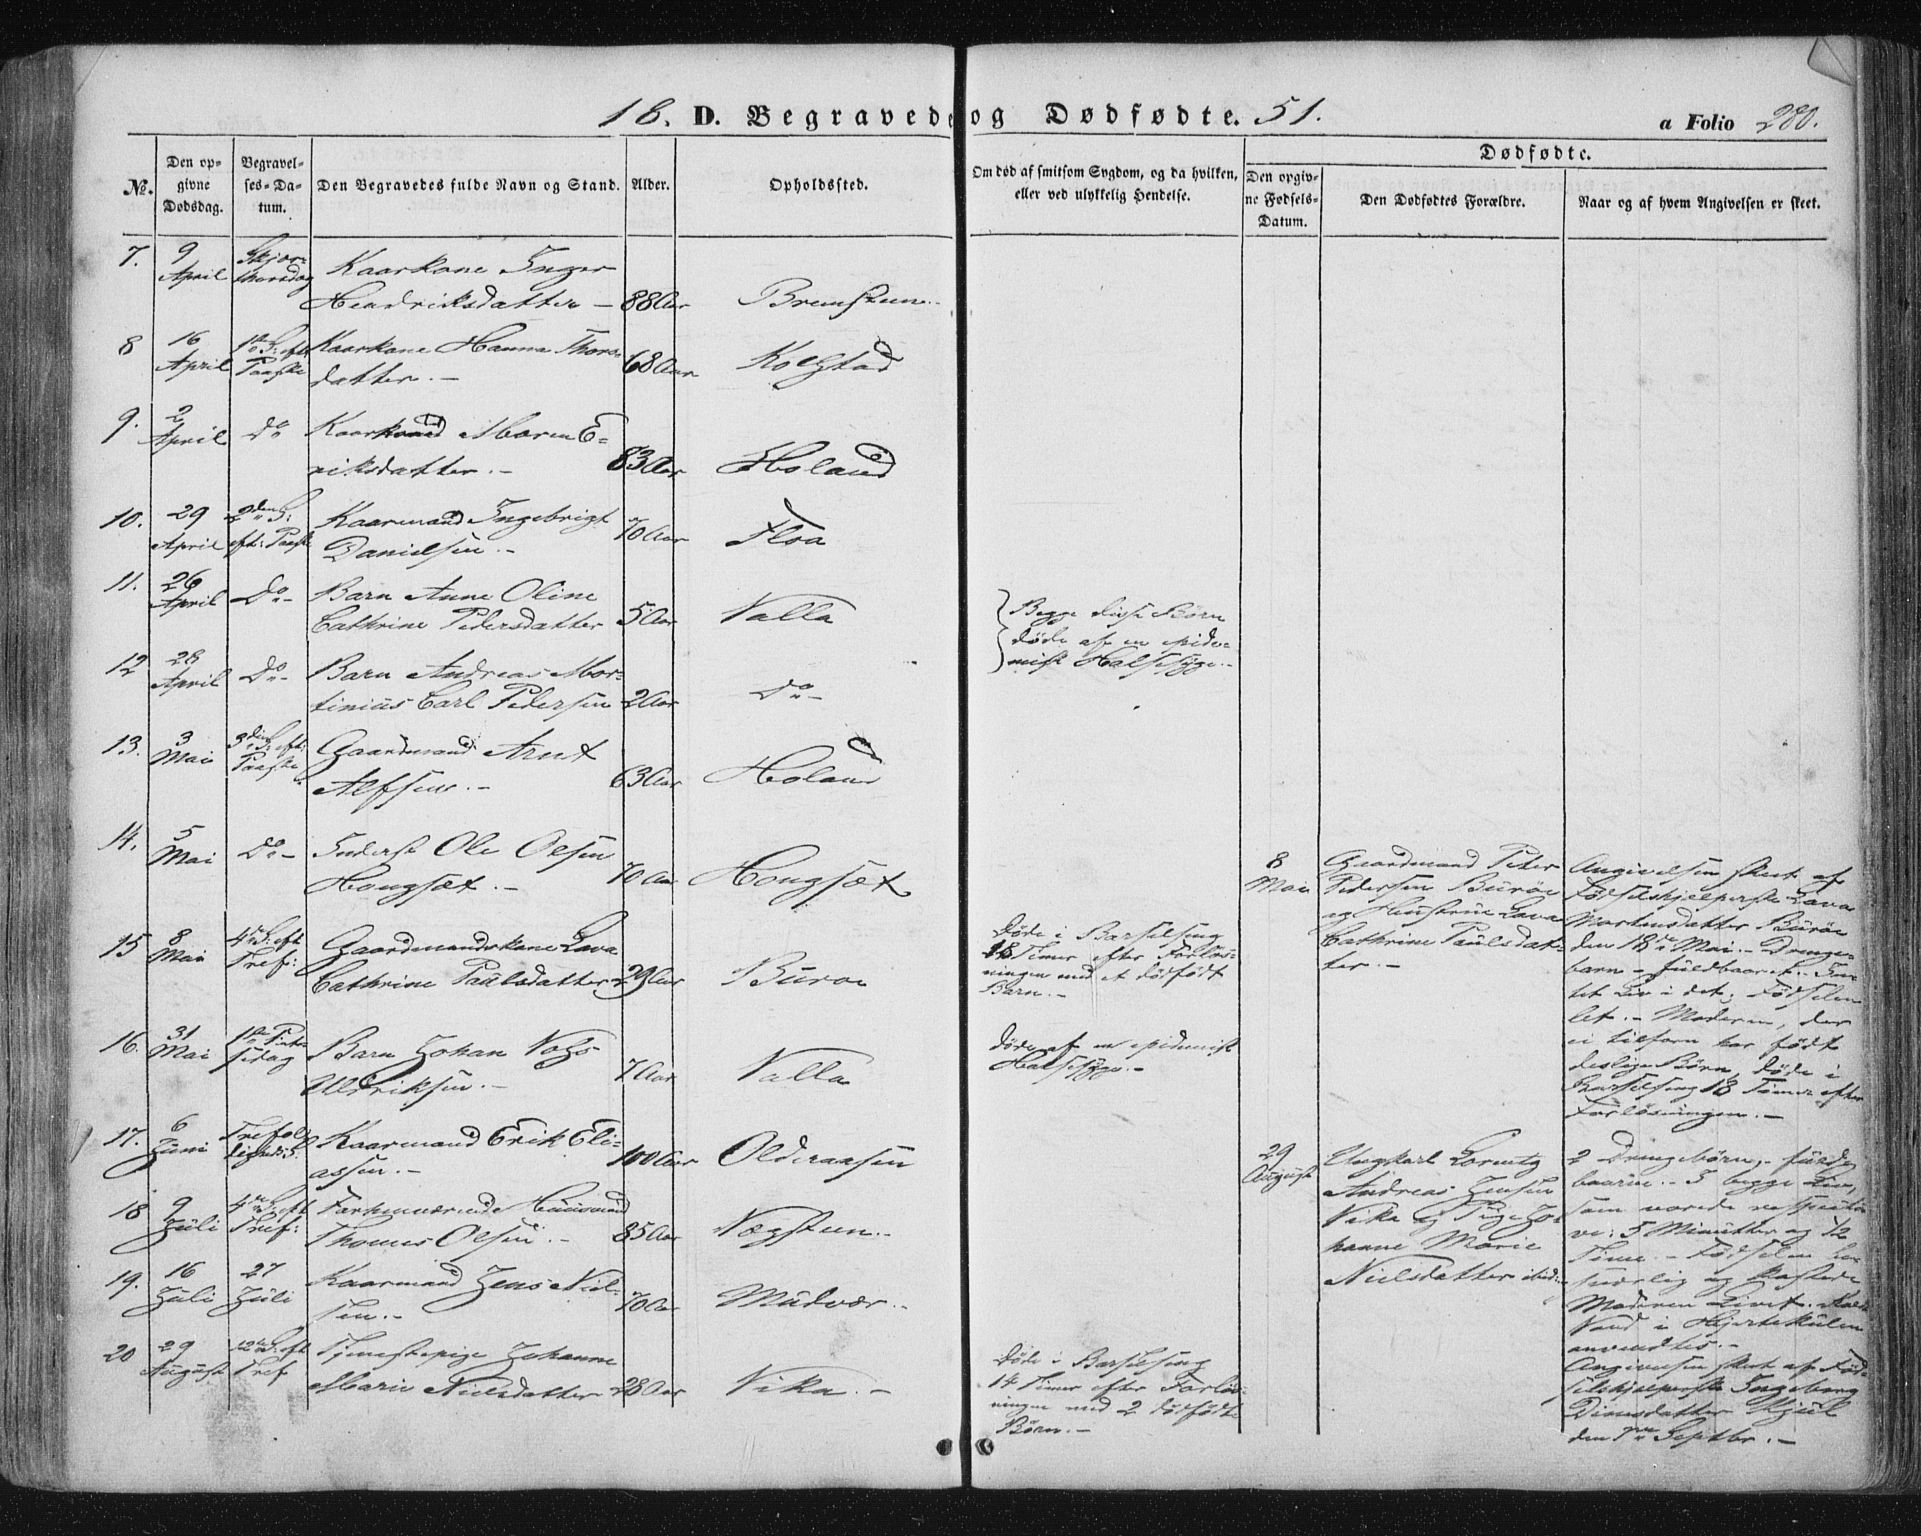 18. D. Begravede og Dødfødte. 51.
a Folio 280.
№.
Den opgivne Dødsdag.
Begravelses-Datum.
Den Begravedes fulde Navn og Stand.
Alder.
Opholdssted.
Om død af smitsom Sygdom, og da hvilken, eller ved ulykkelig Hendelse.
Dødfødte.
Den opgivne Fødsels-Datum.
Den Dødfødtes Forældre.
Naar og af hvem Angivelsen er skeet.
7. 9 Skjær- Kaarkone Inger
April thorsdag Hendriksdatter — 88 Aar
8 16 1ste S: eft Kaarkone Hanna Thors-
April Paaske datter. — 68 Aar Kolstad
9. 2 Kaarkone Maren E-
April Do riksdatter. — 83 Aar Holand
10. 29 2den S: Kaarmand Ingebrigt 70 Aar Floa
April eft: Paaske Danielsen. —
11. 26 Barn Anne Oline
April Do — Cathrine Pedersdatter 5 Aar Valla
Begge disse Børn
døde af en epide-
misk Halssyge. —
12 28 Barn Andreas Mor-
April Do — tinius Carl Pedersen 2 Aar Do —
13. 3 3die S: eft: Gaardmand Arnt
Mai Paaske Alfsen. — 63 Aar Holand
14. 5 Inderst Ole Olsen
Mai Do — Hongsæt. — 70 Aar Hongsæt
15 8 4de S: eft Gaardmandskone Lava
Mai Tref: Cathrine Paulsdatter 29 Aar Burøe
Døde i Barselseng
18 Timer efter Forløs-
ningen med et dødfødt
Barn. —
16. 31 1ste Pint-
Mai sedag Barn Johan
Aldriksen. — 7 Aar Valla
døde af en epidemisk
Halssyge. —
17. 6 Trefol- Kaarmand Erik Eli-
Juni digheds S. assen. — 100 Aar Olderaasen
18 9 4de S: eft Huusmand
Juli Tref: Thomes Olsen. — 85 Aar
19. 16 27 Kaarmand Jens Niel-
Juli Juli sen. — 70 Aar Mudvær. —
20 29 12te S: eft Tjenestepige Johanne
August Tref Marie Nielsdatter 28 Aar Vika. —
Døde i Barselseng
14 Timer efter Forløs-
ningen med 2 dødfødte
Børn. —
8 Gaardmand Peter
Mai Pedersen Burøe
og Hustrue Lava
Cathrine Paulsdat-
ter. —
Angivelsen skeet af
Fødselshjelperske Lava
Mortensdatter Burøe
den 18de Mai. — Drenge-
barn — fuldbaaret. — In-
tet Liv i det; Fødselen
let. — Moderen, der
ei tilforn har født
deslige Børn, døde i
Barselseng 18 Timer efter
Forløsningen. —
29 Ungkarl Lorentz
August Andreas Jensen
Vika og Pige Jo-
hanne Marie
Nielsdatter ibid:
2 Drengebørn, fuld-
baarne. — I begge Liv,
som varede respecti-
ve: 5 Minutter og ½
Time. — Fødselen
og kostede
Moderen Livet. Koldt
Vand i Hjertekulen
anvendtes. —
Angivelsen skeet af Fød-
selshjelperske Ingeborg
den 7de Septbr. —